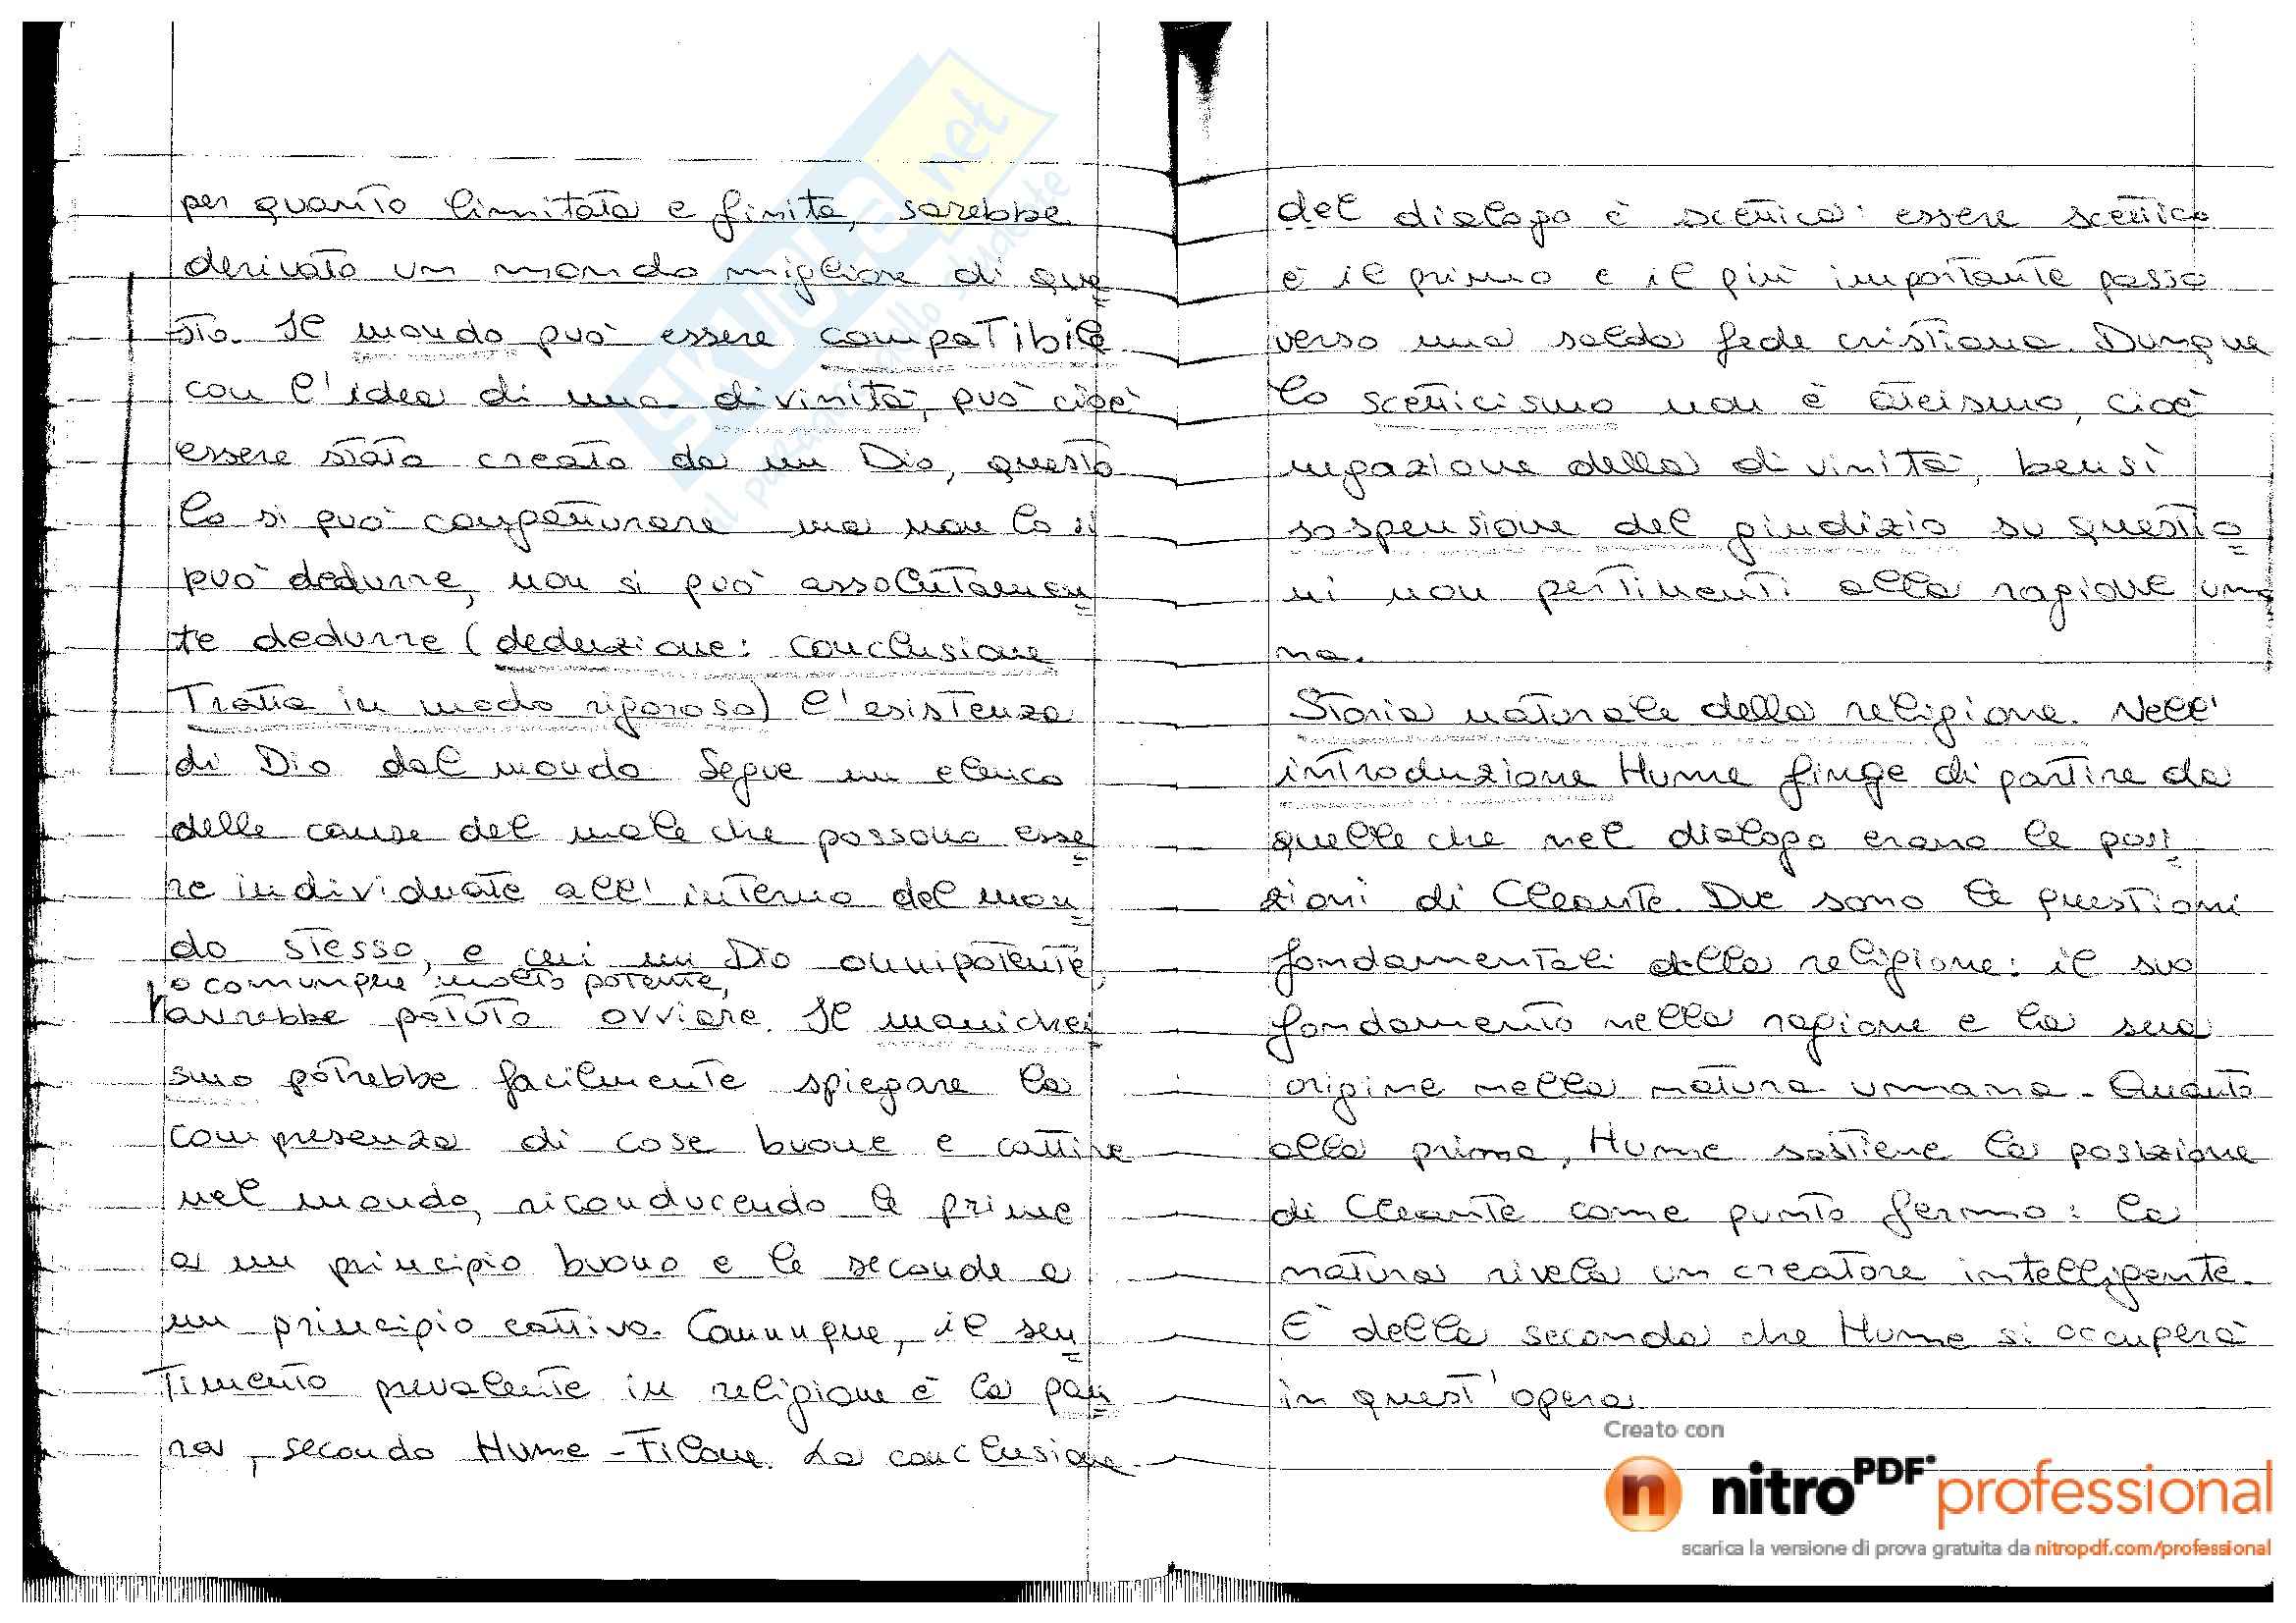 per quanto limitata e finita, sarebbe
derivato un mondo migliore di que
sto. Il mondo può essere compatibile
con l'idea di una divinità, può cioè
essere stato creato da un Dio, questo
lo si può congetturare ma non lo si
può dedurre, non si può assolutamen
te dedurre (deduzione: conclusione
tratta in modo rigoroso) l'esistenza
di Dio dal mondo. Segue un elenco
delle cause del male che possono esse
re individuate all'interno del mon
do stesso, e cui un Dio onnipotente,
o comunque molto potente,
avrebbe potuto ovviare. Il manichei
smo potrebbe facilmente spiegare la
compresenza di cose buone e cattive
nel mondo, riconducendo le prime
a un principio buono e le seconde a
un principio cattivo. Comunque, il sen
timento prevalente in religione è la pau
ra, secondo Hume-Filone. La conclusione
del dialogo è scettica: essere scettico
è il primo e il più importante passo
verso una salda fede cristiana. Dunque
lo scetticismo non è ateismo, cioè
negazione della divinità, bensì
sospensione del giudizio su questio
ni non pertinenti alla ragione uma
na.
Storia naturale della religione. Nell'
introduzione Hume finge di partire da
quelle che nel dialogo erano le posi
zioni di Cleante. Due sono le questioni
fondamentali della religione: il suo
fondamento nella ragione e la sua
origine nella natura umana. Quanto
alla prima, Hume sostiene la posizione
di Cleante come punto fermo: la
natura rivela un creatore intelligente.
È della seconda che Hume si occuperà
in quest'opera
Creato con
nitroPDF professional
scarica la versione di prova gratuita da nitropdf.com/professional